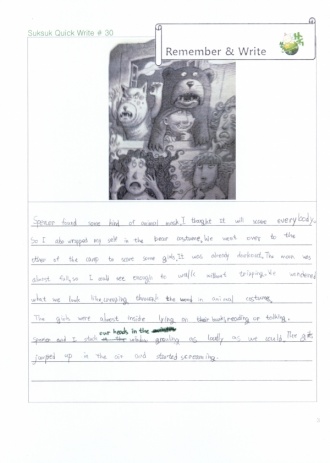 Suksuk Quick Write # 30
Remember & Write
Spencer found some kind of animal mask. I thought it will scare everybody.
So I also dropped my self in the bear costume. We went over to the
other of the camp to scare some girls. It was already darkened. The moon was
almost full, so I could see enough to walk without tripping. We wondered
what we look like, creeping through the wood in animal costume.
The girls were almost inside lying on their bunks, reading or talking.
Spencer and I stuck our heads in the window growling as loudly as we could. The girls
jumped up in the air and started screaming.